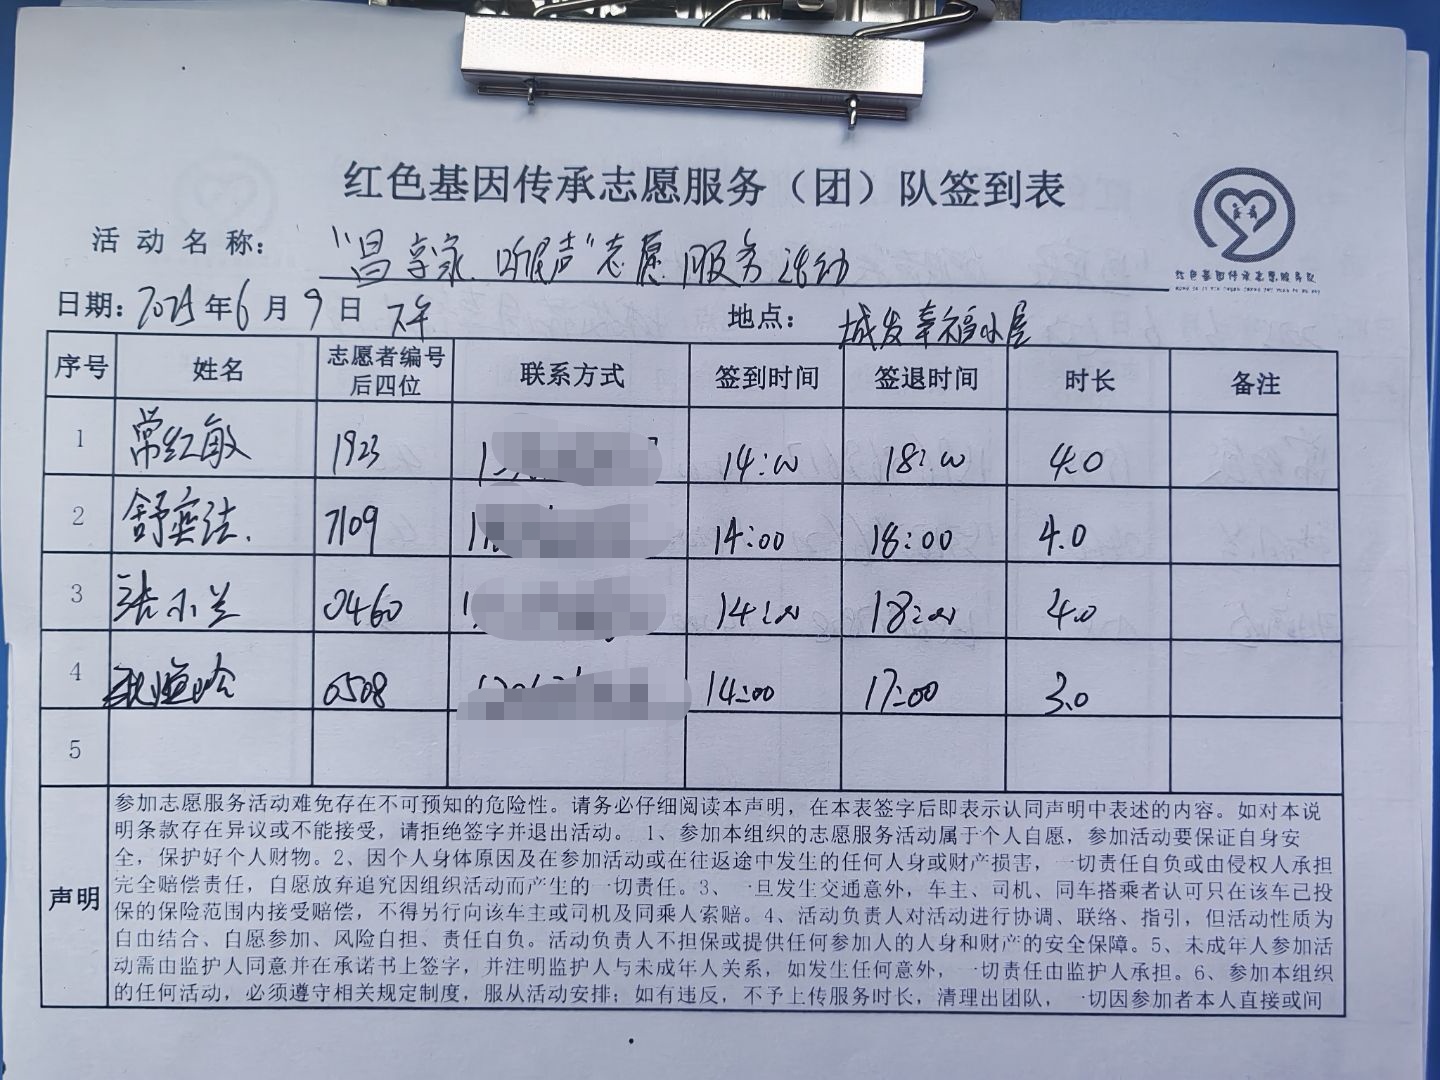 红色基因传承志愿服务（团）队签到表
活动名称：“昌享家 听民声”志愿服务活动
红色基因传承志愿服务队
日期：2025年6月9日 下午 地点：城发幸福小屋
序号 姓名 志愿者编号后四位 联系方式 签到时间 签退时间 时长 备注
1 常红敏 1923 14:00 18:00 4.0
2 舒奕洁 7109 14:00 18:00 4.0
3 张小兰 0460 14:00 18:00 4.0
4 0508 14:00 17:00 3.0
5
声明
参加志愿服务活动难免存在不可预知的危险性。请务必仔细阅读本声明，在本表签字后即表示认同声明中表述的内容。如对本说
明条款存在异议或不能接受，请拒绝签字并退出活动。 1、参加本组织的志愿服务活动属于个人自愿，参加活动要保证自身安
全，保护好个人财物。2、因个人身体原因及在参加活动或在往返途中发生的任何人身或财产损害，一切责任自负或由侵权人承担
完全赔偿责任，自愿放弃追究因组织活动而产生的一切责任。3、一旦发生交通意外，车主、司机、同车搭乘者认可只在该车已投
保的保险范围内接受赔偿，不得另行向该车主或司机及同乘人索赔。4、活动负责人对活动进行协调、联络、指引，但活动性质为
自由结合、自愿参加、风险自担、责任自负。活动负责人不担保或提供任何参加人的人身和财产的安全保障。5、未成年人参加活
动需由监护人同意并在承诺书上签字，并注明监护人与未成年人关系，如发生任何意外，一切责任由监护人承担。6、参加本组织
的任何活动，必须遵守相关规定制度，服从活动安排；如有违反，不予上传服务时长，清理出团队，一切因参加者本人直接或间